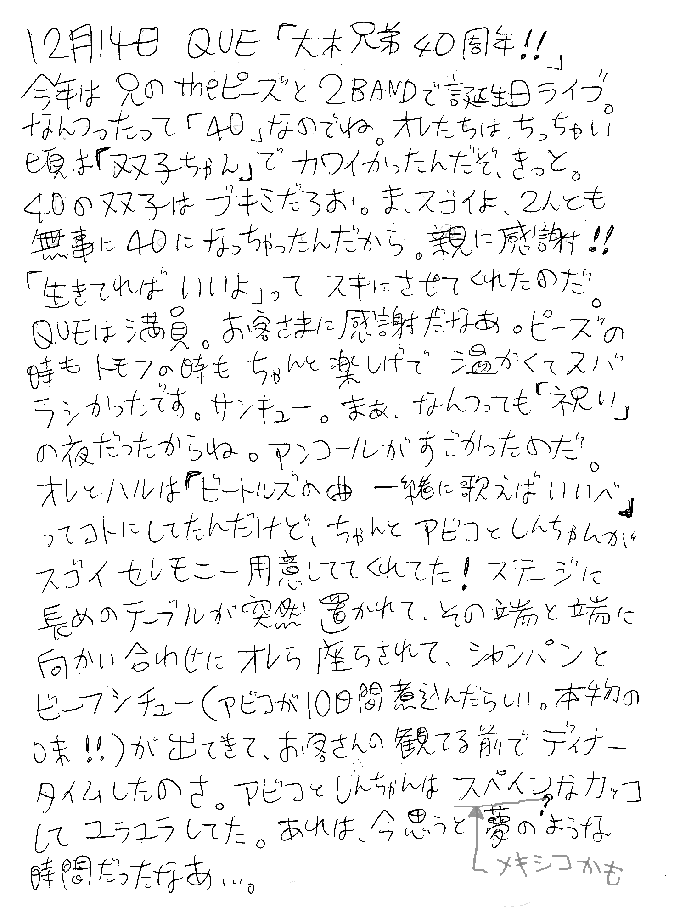 12月14日 QUE「大木兄弟40周年!!」
今年は兄のtheピーズと2BANDで誕生日ライブ。
なんつったって「40」なのでね。オレたちは、ちっちゃい
頃は「双子ちゃん」でカワイかったんだぞ、きっと。
40の双子はブキミだろお!。ま、スゴイよ、2人とも
無事に40になっちゃったんだから。親に感謝!!
「生きてればいいよ」ってスキにさせてくれたのだ。
QUEは満員。お客さまに感謝だなあ。ピーズの
時もトモフの時もちゃんと楽しげで温かくてスバ
ラシかったです。サンキュー。まぁ、なんつっても「祝い」
の夜だったからね。アンコールがすごかったのだ。
オレとハルは「ビートルズの曲一緒に歌えばいいべ」
ってコトにしてたんだけど、ちゃんとアビコとしんちゃんが
スゴイセレモニー用意しててくれてた!ステージに
長めのテーブルが突然置かれて、その端と端に
向かい合わせにオレら座らされて、シャンパンと
ビーフシチュー(アビコが10日間煮込んだらしい。本物の
味!!)が出てきて、お客さんの観てる前でディナー
タイムしたのさ。アビコとしんちゃんはスペイン?なカッコ
してユラユラしてた。あれは、今思うと夢のような
時間だったなあ…。
メキシコかも